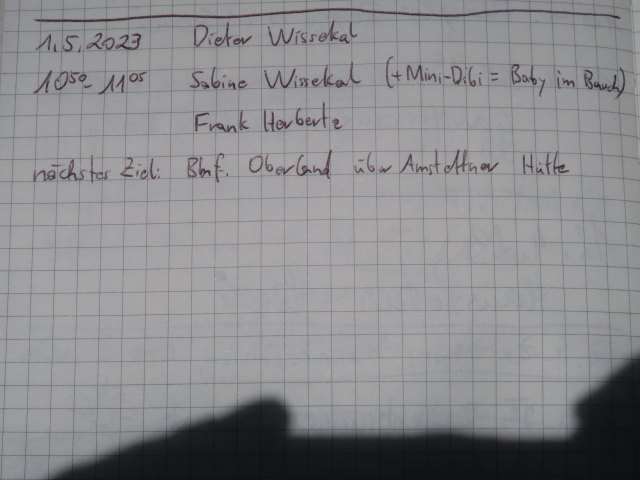 1.5.2023 Dieter Wissekal
10⁵⁰- 11⁰⁵ Sabine Wissekal (+Mini-Dibi = Baby im Bauch)
Frank Herbertz
nächstes Ziel: Bhf. Oberland über Amstettner Hütte